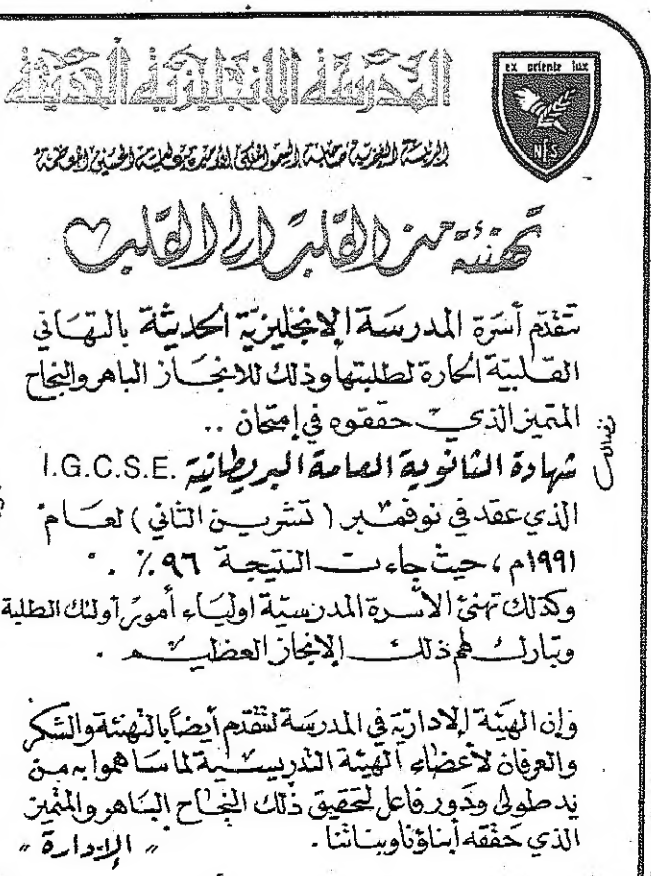 ex oriente lux
NES
المدرسة الانجليزية الحديثة
الرئيسة الفخرية صاحبة السمو الملكي الأميرة عالية الحسين المعظمة
تهنئة من القلب إلى القلب
تتقدم أسرة المدرسة الانجليزية الحديثة بالتهاني
القلبية الحارة لطلبتها وذلك للانجاز الباهر والنجاح
المتميز الذي حققوه في إمتحان ..
شهادة الثانوية العامة البريطانية I.G.C.S.E.
الذي عقد في نوفمبر ( تشرين الثاني ) لعام
١٩٩١م ، حيث جاءت النتيجة ٩٦٪ .
وكذلك تهنئ الأسرة المدرسية اولياء أمور أولئك الطلبة
وتبارك لهم ذلك الإنجاز العظيم .
وإن الهيئة الادارية في المدرسة لتتقدم أيضاً بالتهنئة والشكر
والعرفان لأعضاء الهيئة التدريسية لما ساهموا به من
يد طولى ودور فاعل لتحقيق ذلك النجاح الباهر والمتميز
الذي حققه أبناؤنا وبناتنا .
" الإدارة "